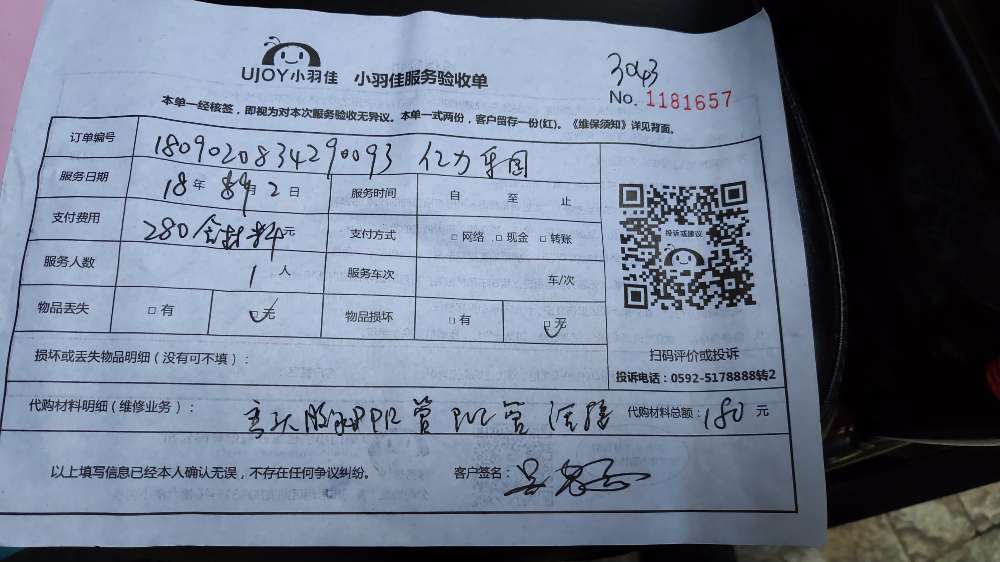 UJOY小羽佳 小羽佳服务验收单
3043
No. 1181657
本单一经核签，即视为对本次服务验收无异议。本单一式两份，客户留存一份(红)。《维保须知》详见背面。
订单编号 1809020834290093
服务日期 18 年 9 月 2 日 服务时间 自 至 止
支付费用 280 元 支付方式 □ 网络 □ 现金 □ 转账
服务人数 1 人 服务车次 车/次
物品丢失 □ 有 □ 无 物品损坏 □ 有 □ 无
投诉或建议
扫码评价或投诉
投诉电话：0592-5178888转2
损坏或丢失物品明细（没有可不填）：
代购材料明细（维修业务）： PPR管 PVC管 代购材料总额：180 元
以上填写信息已经本人确认无误，不存在任何争议纠纷。 客户签名：